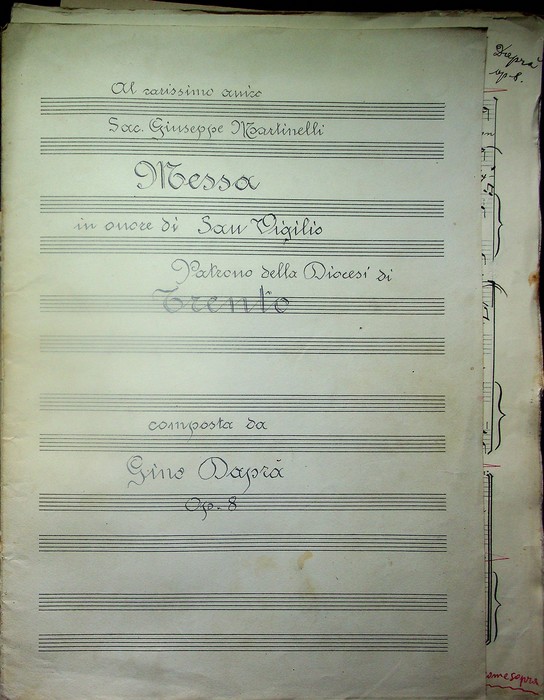 Al carissimo amico
Sac. Giuseppe Martinelli
Messa
in onore di San Vigilio
Patrono della Diocesi di
Trento
composta da
Gino Daprà
Op. 8
Daprà
op. 8.
come sopra